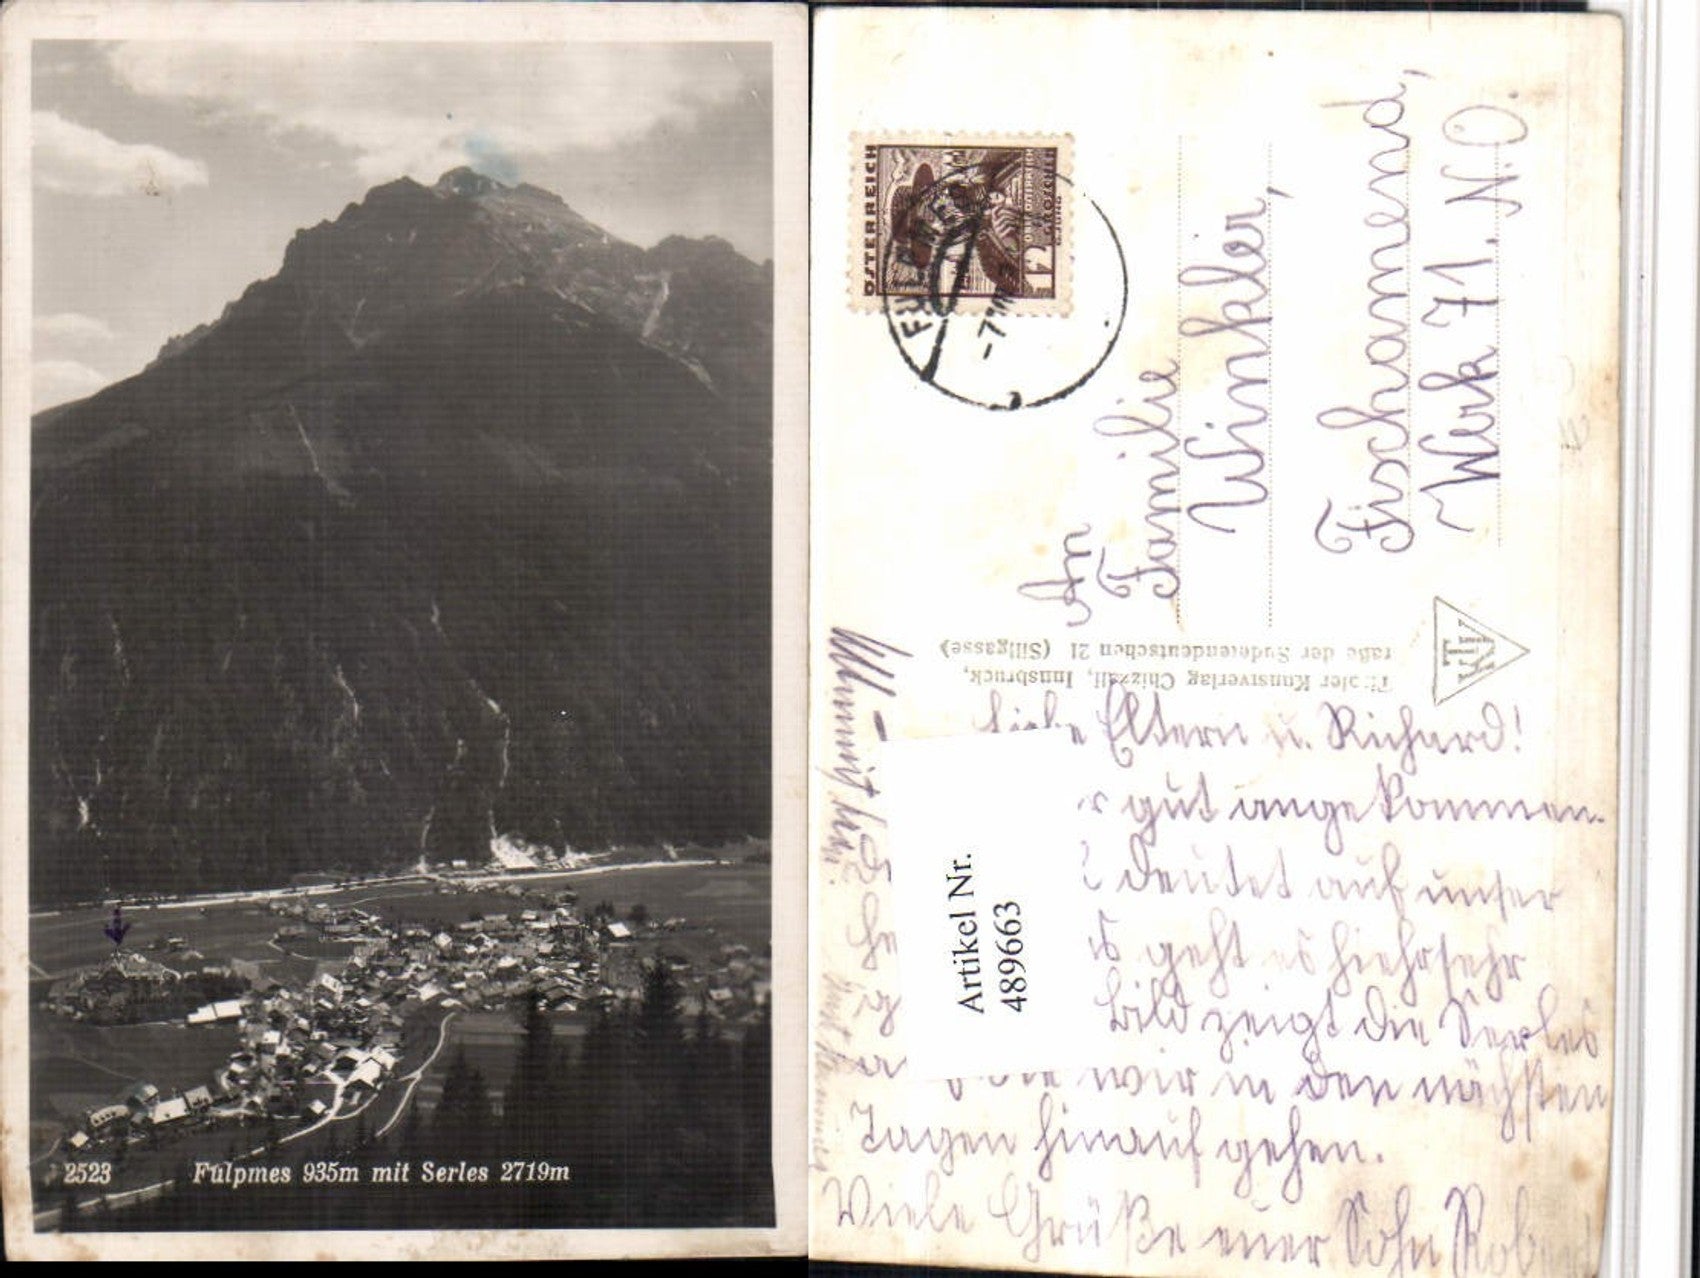 2523 Fulpmes 935m mit Serles 2719m
ÖSTERREICH
12
GROSCHEN
FULPMES
-7.
An
Familie
Winkler,
Fischamend,
Werk 71. N.Ö.
Tiroler Kunstverlag Chizzali, Innsbruck,
raße der Sudetendeutschen 21 (Sillgasse)
Liebe Eltern u. Richard!
gut angekommen.
deutet auf unser
geht es hiehr sehr
Bild zeigt die Serles
wir in den nächsten
Tagen hinauf gehen.
Viele Grüße euer Sohn Robert
Artikel Nr.
489663